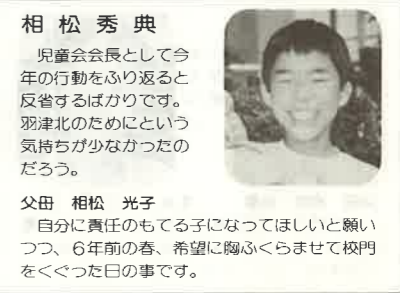 相松秀典
児童会会長として今
年の行動をふり返ると
反省するばかりです。
羽津北のためにという
気持ちが少なかったの
だろう。
父母　相松　光子
自分に責任のもてる子になってほしいと願い
つつ、6年前の春、希望に胸ふくらませて校門
をくぐった日の事です。